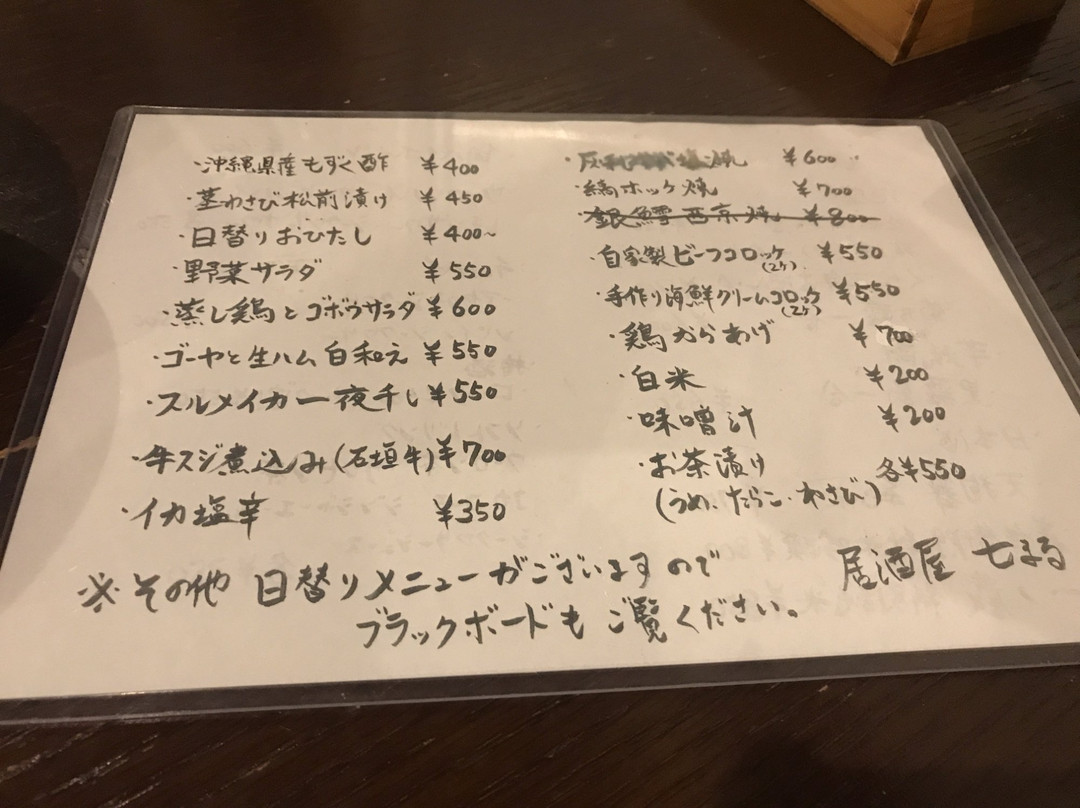 ・沖縄県産もずく酢 ¥400
・茎わさび松前漬け ¥450
・日替りおひたし ¥400~
・野菜サラダ ¥550
・蒸し鶏とゴボウサラダ ¥600
・ゴーヤと生ハム白和え ¥550
・スルメイカ一夜干し ¥550
・牛スジ煮込み(石垣牛) ¥700
・イカ塩辛 ¥350
¥600
・縞ホッケ焼 ¥700
・銀鱈西京焼 ¥800
・自家製ビーフコロッケ(2ケ) ¥550
・手作り海鮮クリームコロッケ(2ケ) ¥550
・鶏からあげ ¥700
・白米 ¥200
・味噌汁 ¥200
・お茶漬け 各¥550
(うめ、たらこ・わさび)
※その他 日替りメニューがございますので
ブラックボードもご覧ください。
居酒屋 七まる